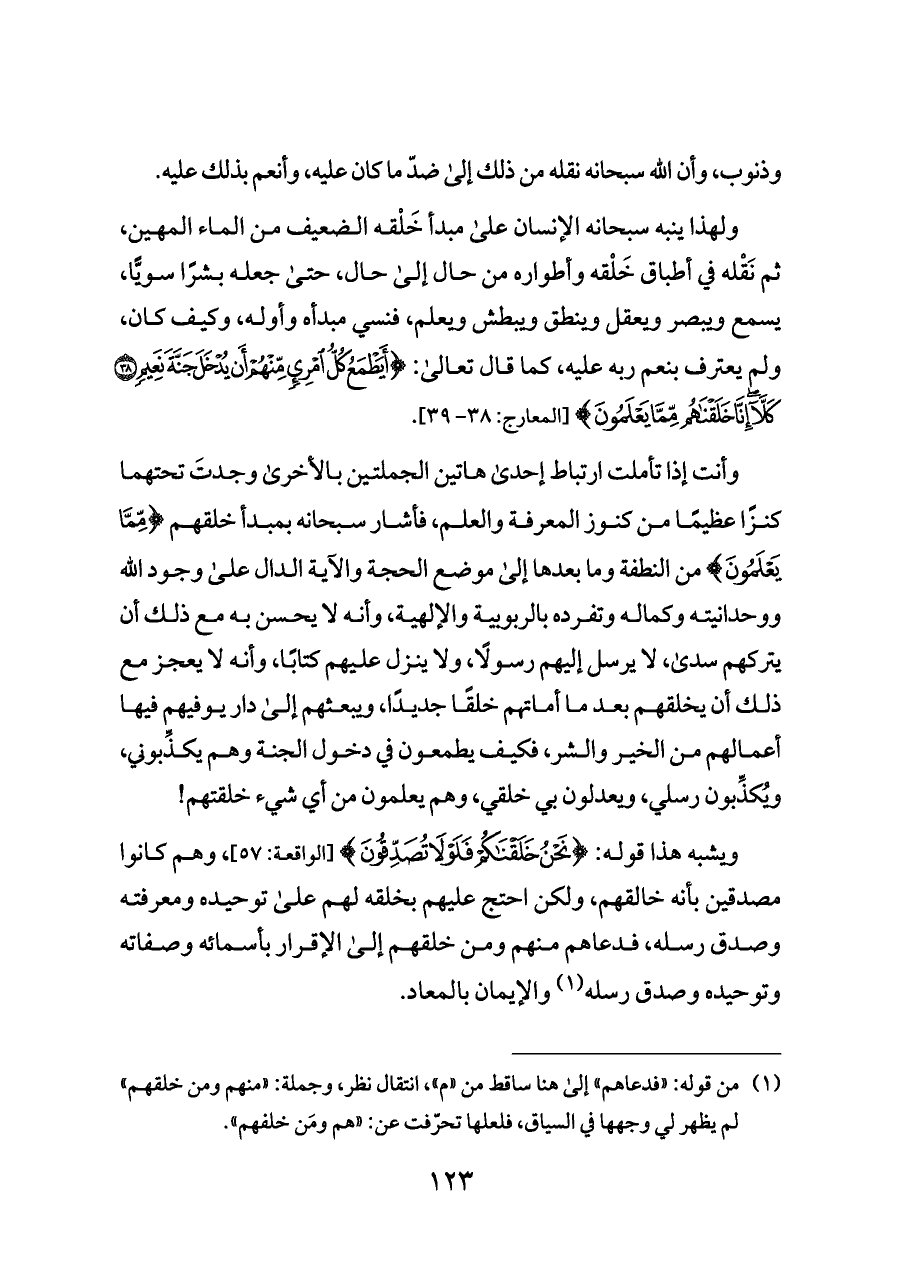 وذنوب، وأن الله سبحانه نقله من ذلك إلىٰ ضدّ ما كان عليه، وأنعم بذلك عليه.
ولهذا ينبه سبحانه الإنسان علىٰ مبدأ خَلْقه الضعيف من الماء المهين،
ثم نَقْله في أطباق خَلْقه وأطواره من حال إلىٰ حال، حتىٰ جعله بشرًا سويًّا،
يسمع ويبصر ويعقل وينطق ويبطش ويعلم، فنسي مبدأه وأوله، وكيف كان،
ولم يعترف بنعم ربه عليه، كما قال تعالىٰ: ﴿أَيَطْمَعُ كُلُّ ٱمْرِيٍٕ مِّنْهُمْ أَن يُدْخَلَ جَنَّةَ نَعِيمٍ ۝٣٨
كَلَّآۖ إِنَّا خَلَقْنَٰهُم مِّمَّا يَعْلَمُونَ﴾ [المعارج: ٣٨- ٣٩].
وأنت إذا تأملت ارتباط إحدىٰ هاتين الجملتين بالأخرىٰ وجدتَ تحتهما
كنزًا عظيمًا من كنوز المعرفة والعلم، فأشار سبحانه بمبدأ خلقهم ﴿مِّمَّا
يَعْلَمُونَ﴾ من النطفة وما بعدها إلىٰ موضع الحجة والآية الدال علىٰ وجود الله
ووحدانيته وكماله وتفرده بالربوبية والإلهية، وأنه لا يحسن به مع ذلك أن
يتركهم سدىٰ، لا يرسل إليهم رسولًا، ولا ينزل عليهم كتابًا، وأنه لا يعجز مع
ذلك أن يخلقهم بعد ما أماتهم خلقًا جديدًا، ويبعثهم إلىٰ دار يوفيهم فيها
أعمالهم من الخير والشر، فكيف يطمعون في دخول الجنة وهم يكذِّبوني،
ويُكذِّبون رسلي، ويعدلون بي خلقي، وهم يعلمون من أي شيء خلقتهم!
ويشبه هذا قوله: ﴿نَحْنُ خَلَقْنَٰكُمْ فَلَوْلَا تُصَدِّقُونَ﴾ [الواقعة: ٥٧]، وهم كانوا
مصدقين بأنه خالقهم، ولكن احتج عليهم بخلقه لهم علىٰ توحيده ومعرفته
وصدق رسله، فدعاهم منهم ومن خلقهم إلىٰ الإقرار بأسمائه وصفاته
وتوحيده وصدق رسله(١) والإيمان بالمعاد.
(١) من قوله: «فدعاهم» إلىٰ هنا ساقط من «م»، انتقال نظر، وجملة: «منهم ومن خلقهم»
لم يظهر لي وجهها في السياق، فلعلها تحرّفت عن: «هم ومَن خلفهم».
١٢٣